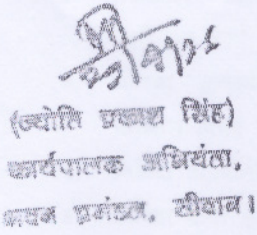 (ज्योति प्रकाश सिंह)
कार्यपालक अभियंता,
भवन प्रमंडल, सीवान।